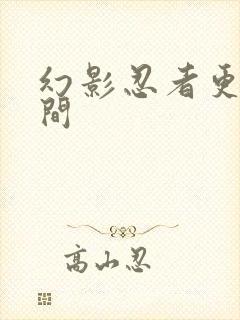 幻影忍者更
間
高山忍